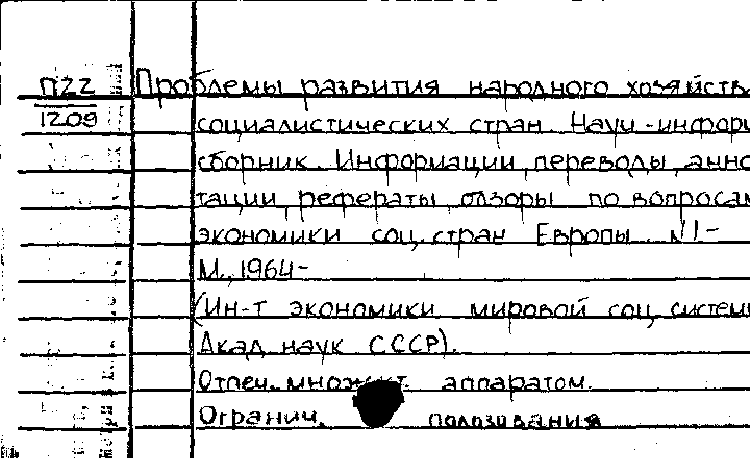 П22 Проблемы развития народного хозяйств
1209 социалистических стран. Науч-информ
сборник. Информации, переводы, анно
тации, рефераты, обзоры по вопросам
экономики соц. стран Европы. N1-
М., 1964-
(Ин-т экономики мировой соц. систем
Акад. наук СССР).
Отпеч. множит. аппаратом.
Огранич. пользования